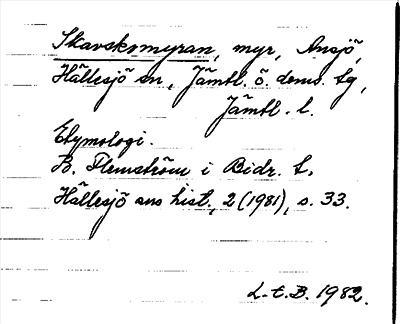 Skavskomyran, myr, Ansjö,
Hällesjö sn, Jämtl. ö doms. tg,
Jämtl. l.
Etymologi.
B. Flemström i Bidr. t.
Hällesjö sns hist., 2 (1981), s. 33.
L.t.B. 1982.